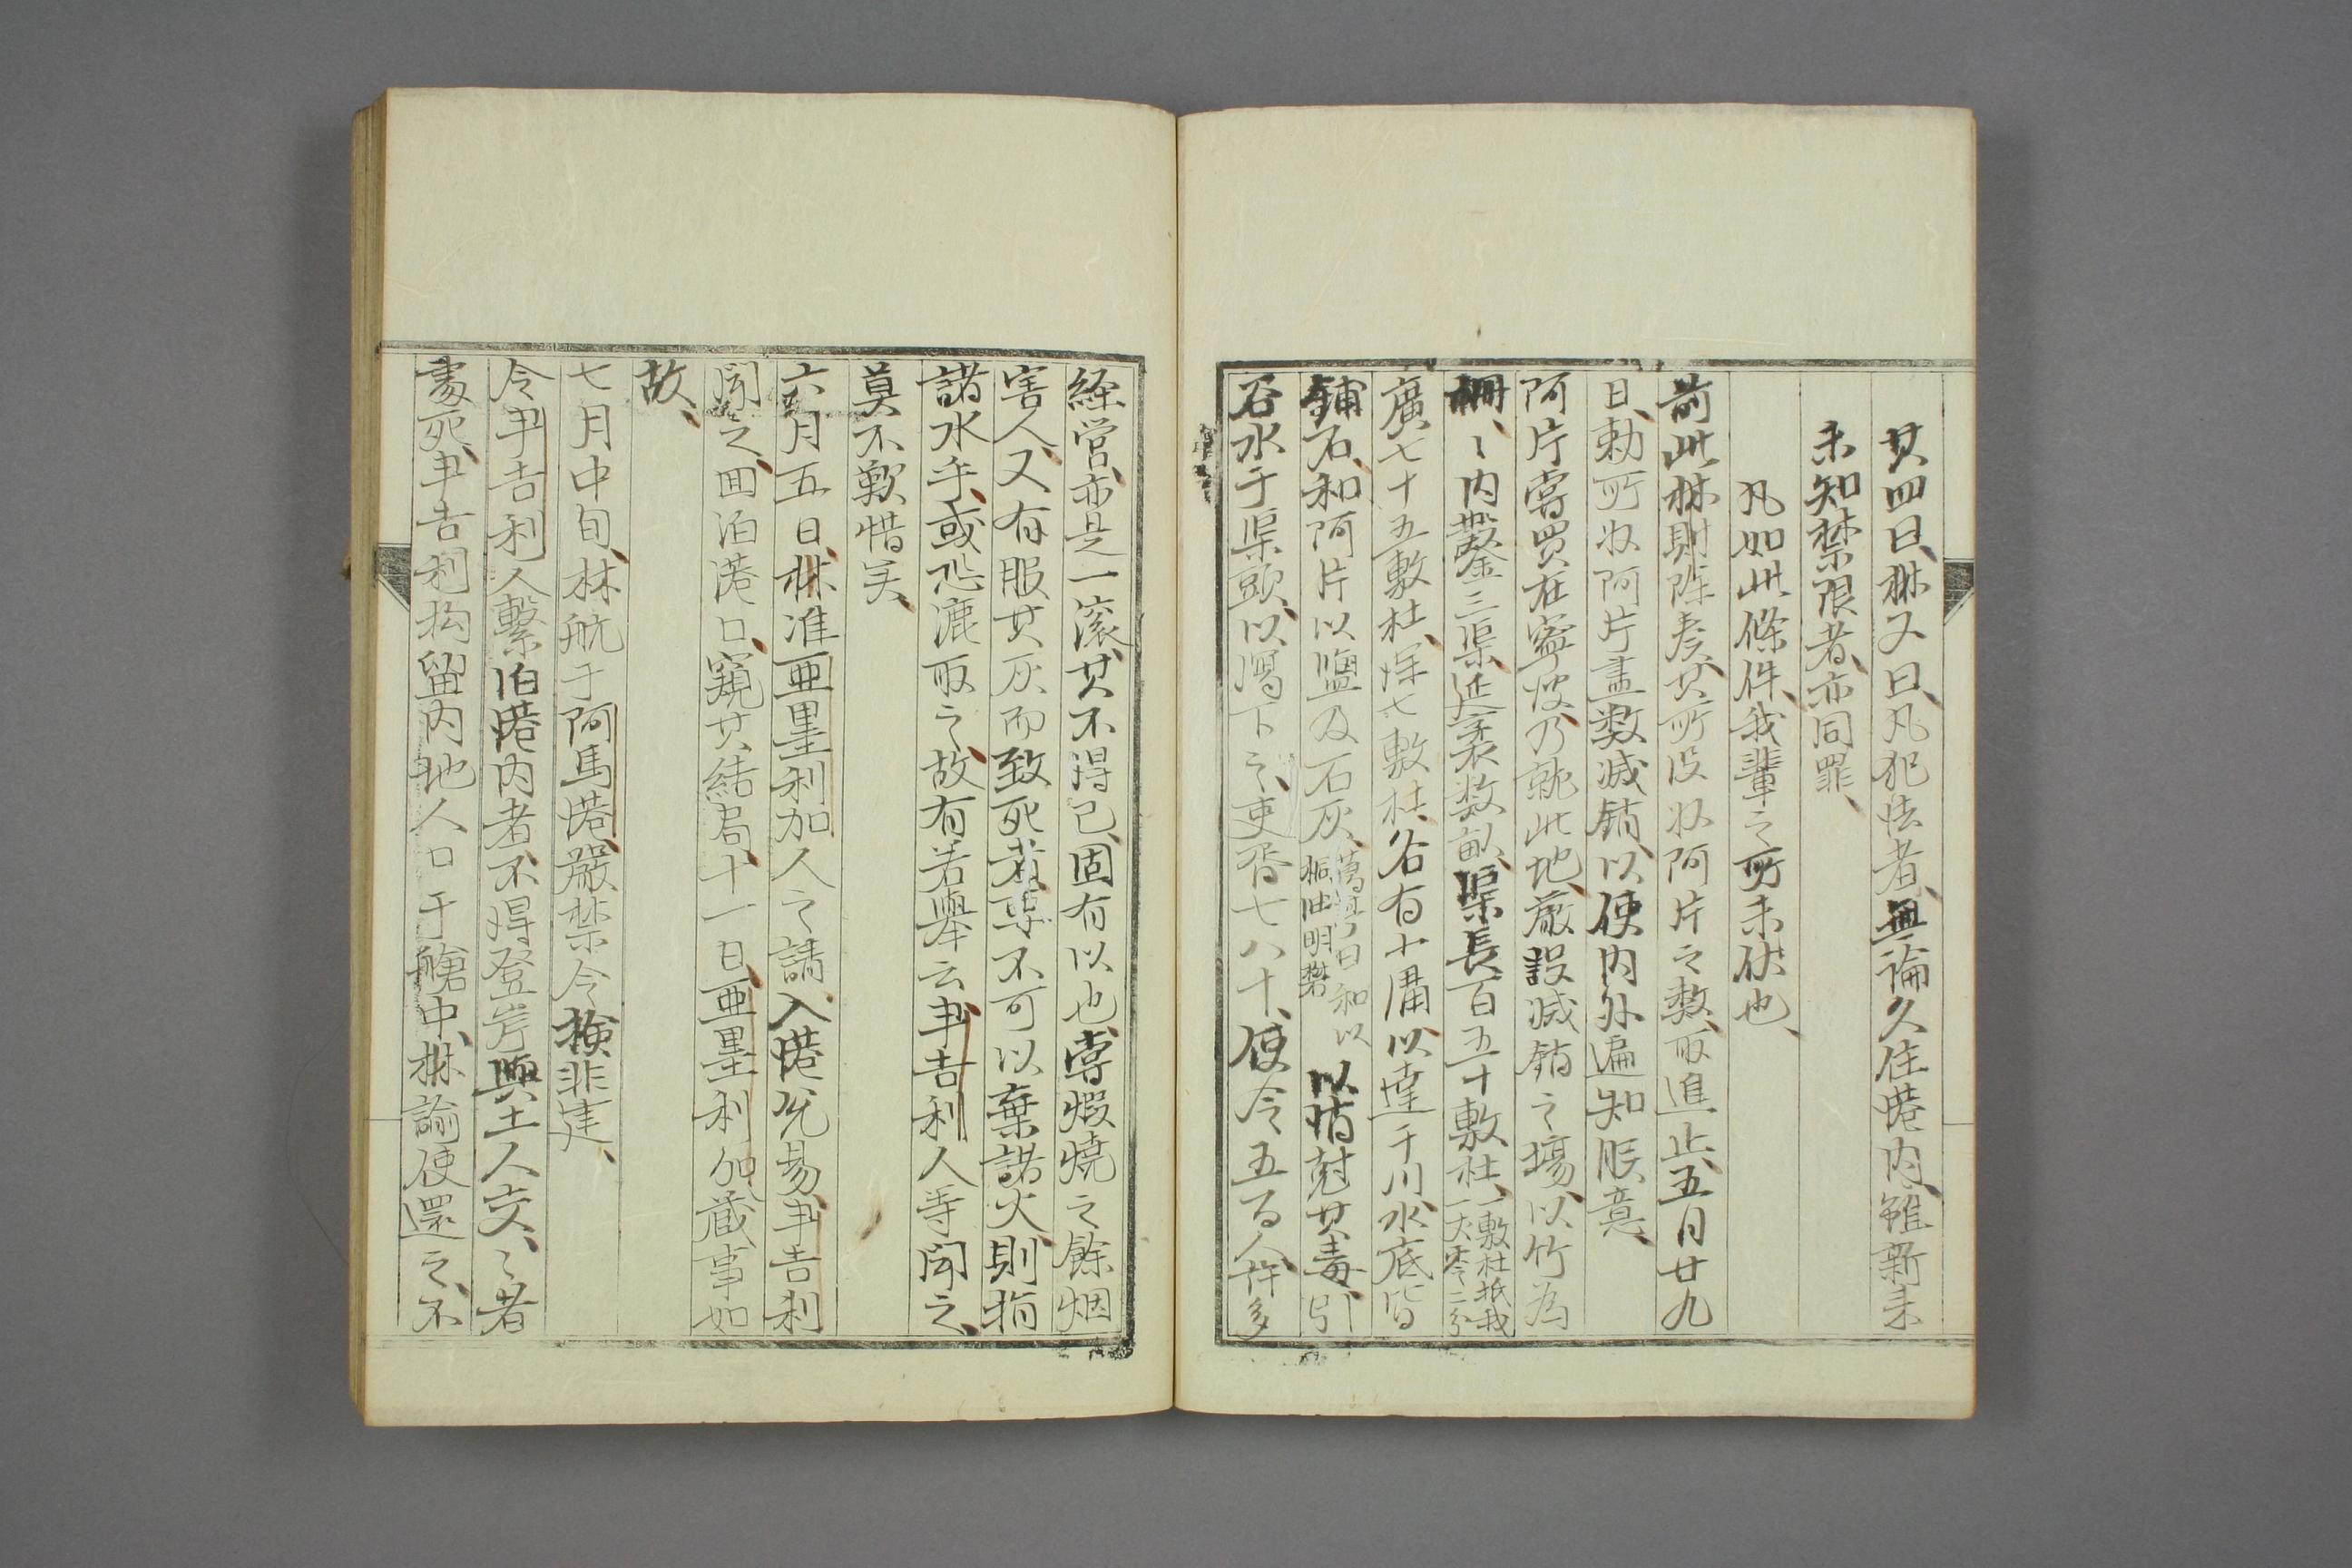 其四日、林又曰、凡犯法者、無論久住港内、雖新来
未知禁限者、亦同罪、
凡如此條件、我輩之所未伏也、
前此林則除奏其所没收阿片之数、取進止、五月廿九
日、勅所收阿片盡数滅銷、以使内外遍知朕意、
阿片嘗買在寧波、乃就此地、嚴設滅銷之場、以竹為
柵、〻内鑿三渠、延袤数畝、渠長百五十敷杜、一敷杜抵我一尺零二分
廣七十五敷杜、深七敷杜、各有小溝、以達于川、水底皆
鋪石、和阿片以盐及石灰、 曰和以 油明礬 以攪其毒、引
谷水于渠頭、以瀉下之、吏胥七八十、使令五百人許多
経営、亦是一滚、其不得已、固有以也、嘗煆燒之餘烟
害人、又有服其灰而致死者、専不可以棄諸火、則捐
諸水乎、或恐漉取之、故有若舉云、英吉利人等聞之、
莫不歎惜矣、
六月五日、林准亜墨利加人之請、入港貿易、英吉利
聞之、囬泊港口、窺其結局、十一日、亜墨利加蔵事如
故、
七月中旬、林航于阿馬港、嚴禁令、検非違、
令英吉利人繫泊港内者、不得登岸與土人交、〻者
處死、英吉利拘留内地人口于艙中、林諭使還之、不